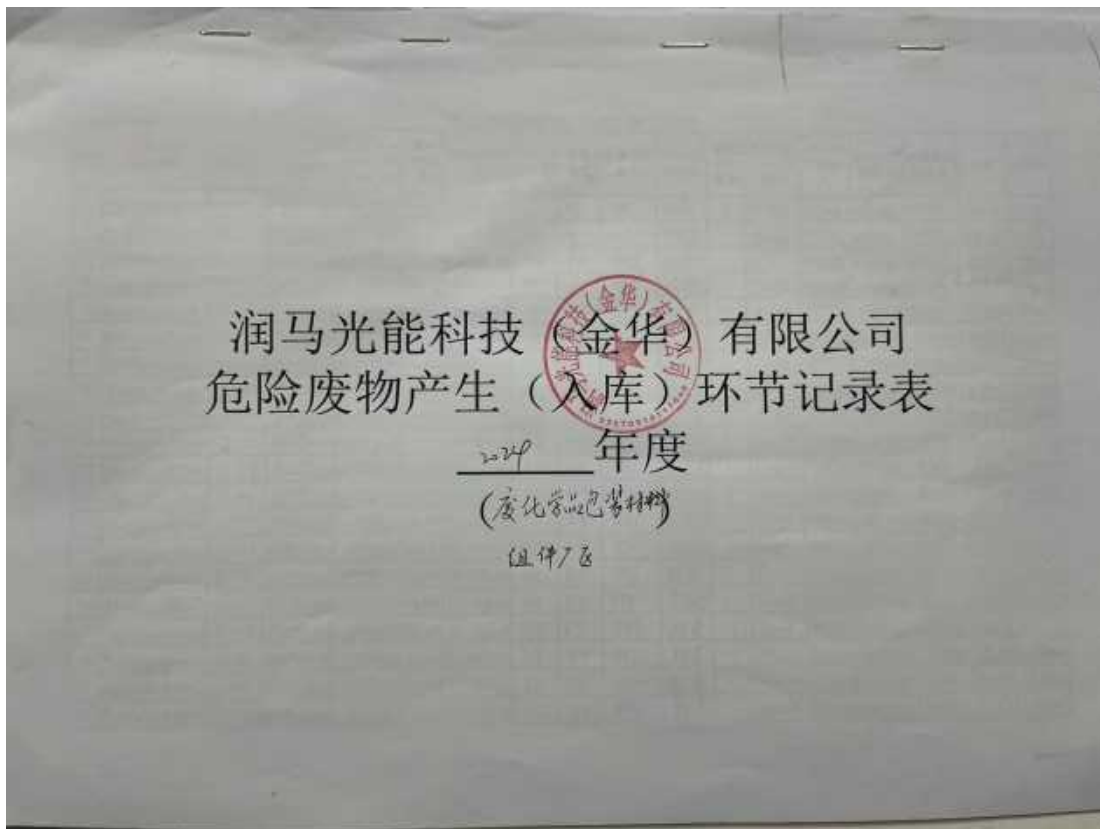 润马光能科技（金华）有限公司
危险废物产生（入库）环节记录表
2024 年度
（废化学品包装材料）
组件厂区